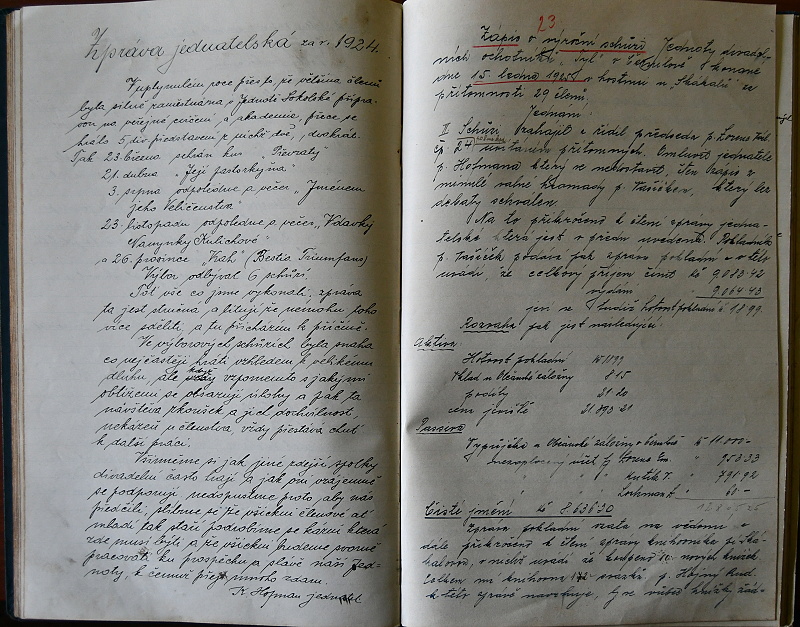 Zpráva jednatelská za r. 1924.
V uplynulém roce přesto, že většina členů
byla silně zaměstnána v Jednotě Sokolské přípra-
vou na veřejné cvičení a akademie, přece se
hrálo 5 div. představení z nichž dvě, dvakráte.
Tak 23. března sehrán kus "Převraty"
21. dubna "Její pastorkyňa"
3. srpna odpoledne a večer "Jménem
Jeho Veličenstva"
23. listopadu odpoledne a večer "Vdavky
Nanynky Kulichové"
a 26. prosince "Vrah" (Bestia Triumfans)
Výbor odbýval 6 schůzí.
Toť vše co jsme vykonali, zpráva
ta jest stručna a lituji že nemohu toho
více sděliti, a tu přicházím k příčině.
Ve výborových schůzích byla snaha
co nejčastěji hráti vzhledem k velikému
dluhu, ale když vzpomenuto s jakými
obtížemi se obsazují úlohy a pak ta
návštěva zkoušek a jich dochvilnost,
nekázeň u členstva, vždy přestává chuť
k další práci.
Všimněme si jak jiné zdejší spolky
divadelní často hrají a jak oni vzájemně
se podporují nedopusťme proto, aby nás
předčili, přičiňme se že všichni členové ať
mladí tak staří podrobíme se kázni která
zde musí býti a že všichni budeme poctivě
pracovati ku prospěchu a slávě naší Jed-
noty, k čemuž přeji mnoho zdaru.
K. Hofman jednatel
23.
Zápis o výroční schůzi Jednoty divadel-
ních ochotníků "Tyl" v konané
dne 15. ledna 1925 v hostinci u "Skákalů" za
přítomnosti 29 členů.
Jednání:
II Schůzi zahájil a řídil předseda p. Lorenc
čp. 24 uvítáním přítomných. Omluvil jednatele
p. Hofmana který se nedostavil, čten zápis z
minulé valné hromady p. Vaříčkem, který bez
debaty schválen.
Na to přikročeno k čtení zprávy jedna-
telské která jest v předu uvedena. Pokladník
p. Vaříček podává pak zprávu pokladní a v této
uvádí, že celkový příjem činil Kč 9.083.42
vydání 9.064.43
jeví se tudíž hotovost pokladní Kč 18.99.
Rozvaha pak jest následující:
Aktiva:
Hotovost pokladní
Vklad u Občanské záložny 815
21.20
cena jeviště 21.893.21
Passiva
Vypůjčka u Občanské záložny v Kč 11.000.-
nezaplacený účet p. Lorenc Em. " 953.33
" " " Kutík T. " 791.92
" " " " 60.-
Čisté jmění Kč 8.636.30
Zpráva pokladní vzata na vědomí a
dále přikročeno k čtení zprávy knihovníka p. Ská-
kalova, v níž uvádí že koupeno nových knih.
Celkem má knihovna svazků. p. Hojný Rud.
k této zprávě navrhuje, by se všech